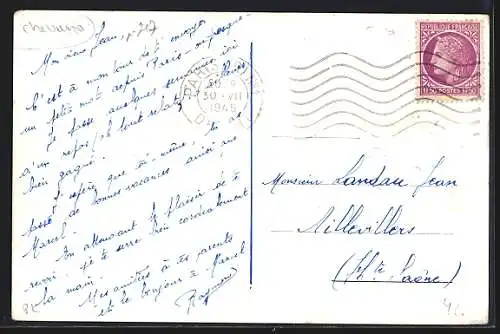 Chevaux
Mon vieux Jean,
C'est à mon tour de t'envoyer
un petit mot depuis Paris
Je passe quelques semaines ici
d'un repos
bien gagné.
J'espère que toi-même, tu as
passé de bonnes vacances ainsi que
Marcel.
En attendant le plaisir de te
revoir je te serre bien cordialement
la main.
Mes amitiés à tes parents
et le bonjour à Marcel
Raymond
PARIS
30 VII
1945
REPUBLIQUE FRANÇAISE
1F50 POSTES 1F50
Monsieur Landau Jean
Aillevillers
(Hte Saône)